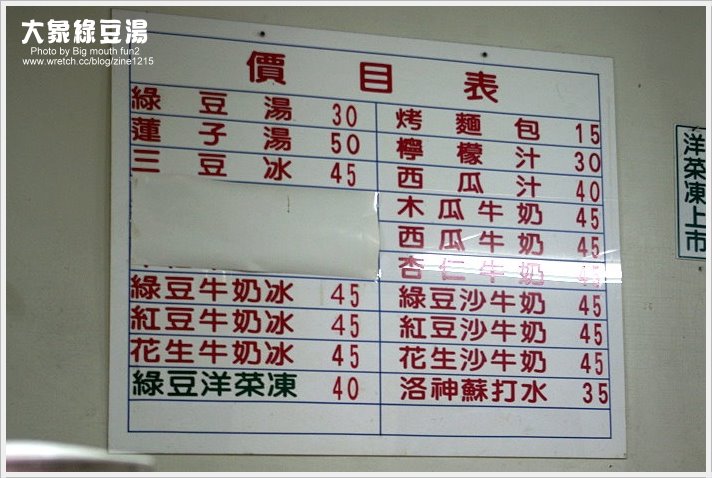 大象綠豆湯
Photo by Big mouth fun2
www.wretch.cc/blog/zine1215
價目表
綠豆湯 30
蓮子湯 50
三豆冰 45
綠豆牛奶冰 45
紅豆牛奶冰 45
花生牛奶冰 45
綠豆洋菜凍 40
烤麵包 15
檸檬汁 30
西瓜汁 40
木瓜牛奶 45
西瓜牛奶 45
杏仁牛奶 45
綠豆沙牛奶 45
紅豆沙牛奶 45
花生沙牛奶 45
洛神蘇打水 35
洋菜凍上市